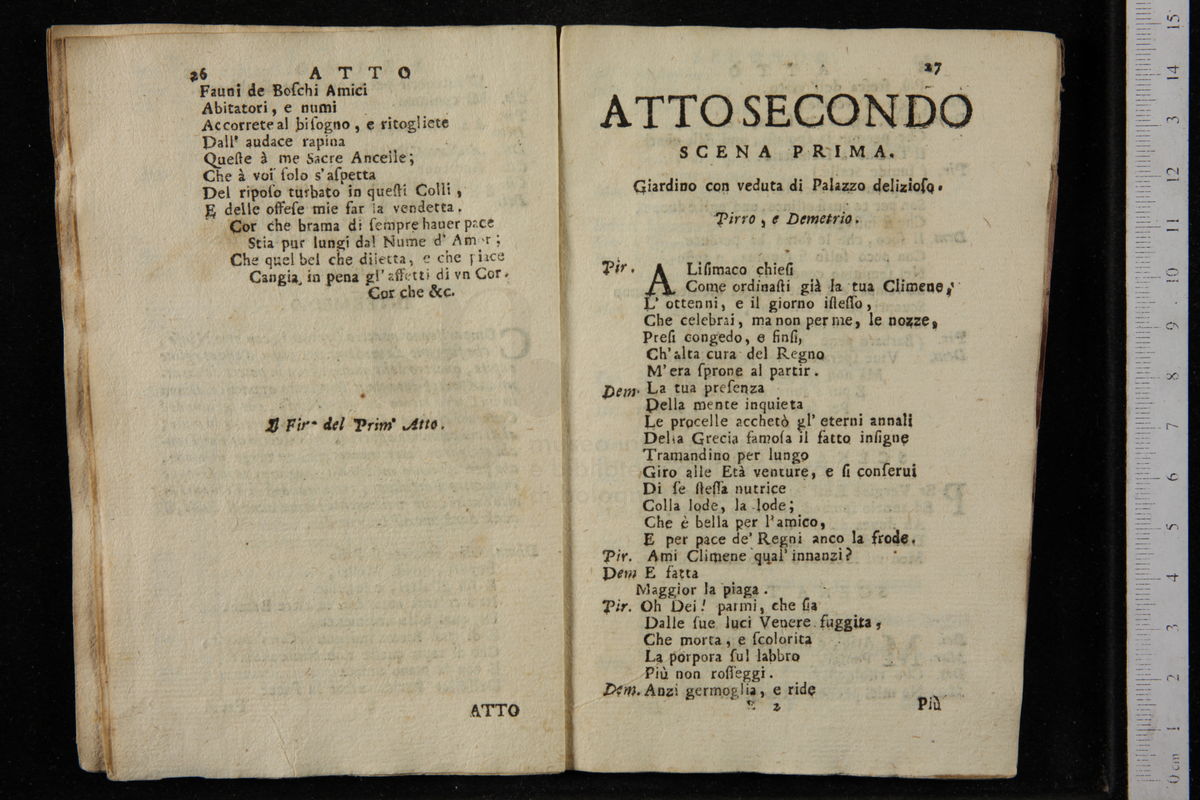 26 ATTO
Fauni de Boſchi Amici
Abitatori, e numi
Accorrete al biſogno, e ritogliete
Dall' audace rapina
Queſte à me Sacre Ancelle;
Che à voi ſolo s'aſpetta
Del ripoſo turbato in queſti Colli,
E delle offeſe mie far la vendetta.
Cor che brama di ſempre haver pace
Stia pur lungi dal Nume d'Amor;
Che quel bel che diletta, e che piace
Cangia in pena gl'affetti di vn Cor.
Cor che &c.
Il Fin del Prim' Atto.
ATTO
27
ATTO SECONDO
SCENA PRIMA.
Giardino con veduta di Palazzo delizioſo.
Pirro, e Demetrio.
Pir. A Liſimaco chieſi
Come ordinaſti già la tua Climene,
L'ottenni, e il giorno iſteſſo,
Che celebrai, ma non per me, le nozze,
Preſi congedo, e finſi,
Ch'alta cura del Regno
M'era ſprone al partir.
Dem. La tua preſenza
Della mente inquieta
Le procelle acchetò gl' eterni annali
Della Grecia famoſa il fatto inſigne
Tramandino per lungo
Giro alle Età venture, e ſi conſervi
Di ſe ſteſſa nutrice
Colla lode, la lode;
Che è bella per l'amico,
E per pace de' Regni anco la frode.
Pir. Ami Climene qual' innanzi?
Dem E fatta
Maggior la piaga.
Pir. Oh Dei! parmi, che ſia
Dalle ſue luci Venere fuggita,
Che morta, e ſcolorita
La porpora ſul labbro
Più non roſſeggi.
Dem. Anzi germoglia, e ride
2 Più